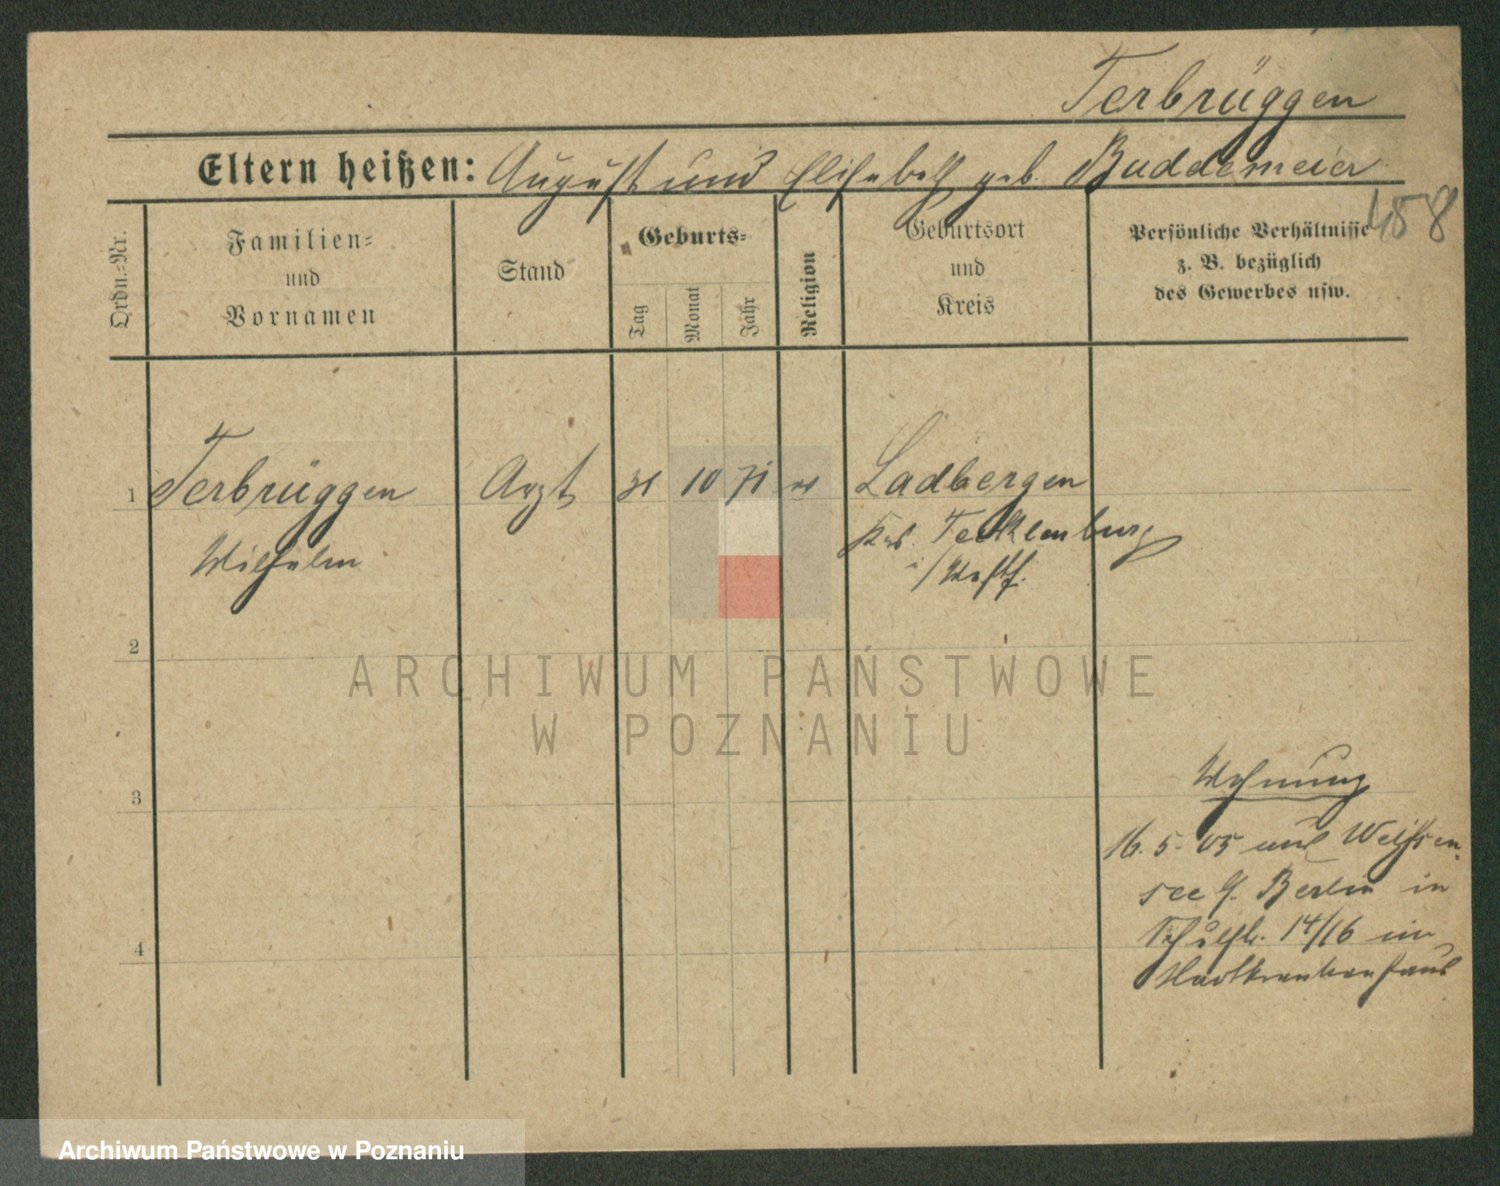 Terbrüggen
Eltern heißen: August und Elisabeth geb. Buddemeier
158
Ordn.-Nr.
Familien-
und
Vornamen
Stand
Geburts-
Tag
Monat
Jahr
Religion
Geburtsort
und
Kreis
Persönliche Verhältnisse
z. B. bezüglich
des Gewerbes usw.
1 Terbrüggen Arzt 31 10 71 ev Ladbergen
Wilhelm
Krs. Tecklenburg
i/Westf.
2
3
4
Wohnung
16. 5. 05 aus Weißen-
see b. Berlin in
Schulstr. 14/16 im
Stadtkrankenhaus
ARCHIWUM PAŃSTWOWE
W POZNANIU
Archiwum Państwowe w Poznaniu